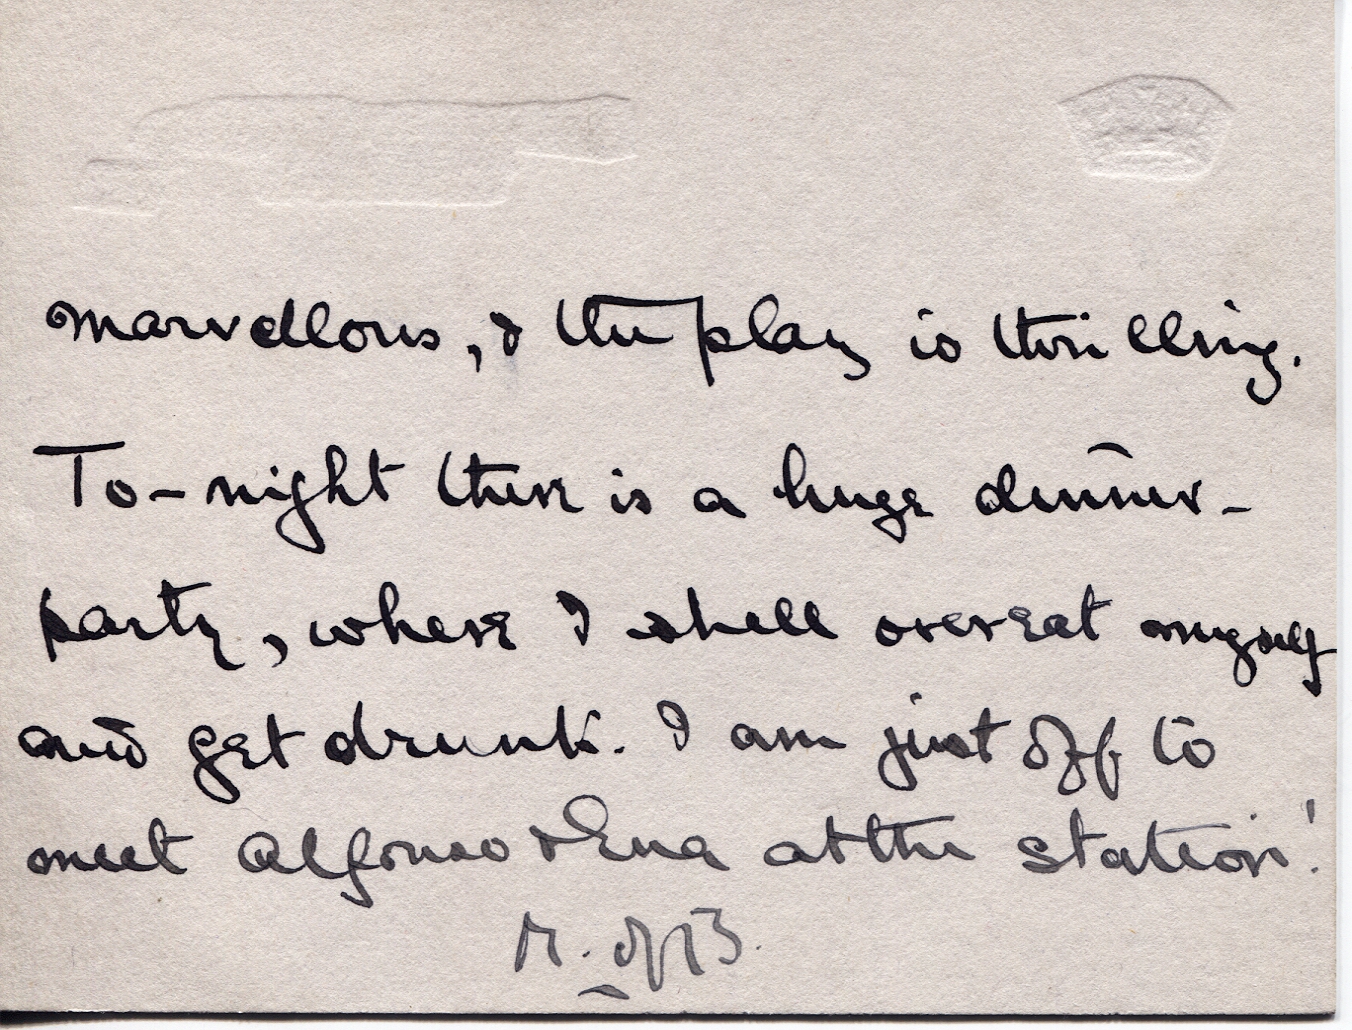 marvellous, & the play is thrilling.
To-night there is a huge dinner-
party, where I shall overeat myself
and get drunk. I am just off to
meet Alfonso & Ena at the station!
M. of B.